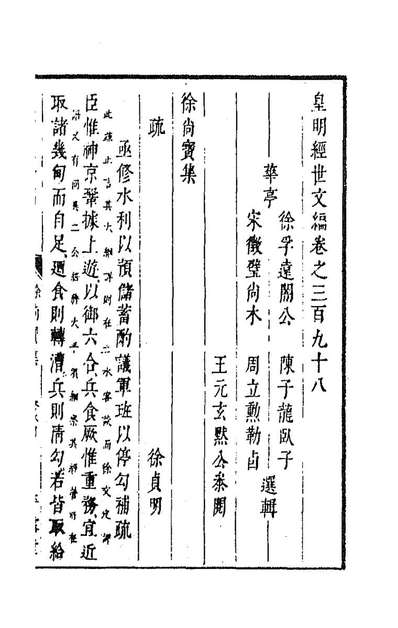 皇明經世文編卷之三百九十八
徐孚遠闇公 陳子龍臥子
華亭 選輯
宋徵璧尚木 周立勳勒卣
王元玄默公叅閱
徐尚寶集
疏 徐貞明
亟修水利以預儲蓄酌議軍班以停勾補疏
此疏止言其大綱詳則在
水客談而徐文定
臣惟神京雄據上遊以御六合兵食厥惟重務宜近
取諸畿甸而自足迺食則轉漕兵則清勾若皆取給